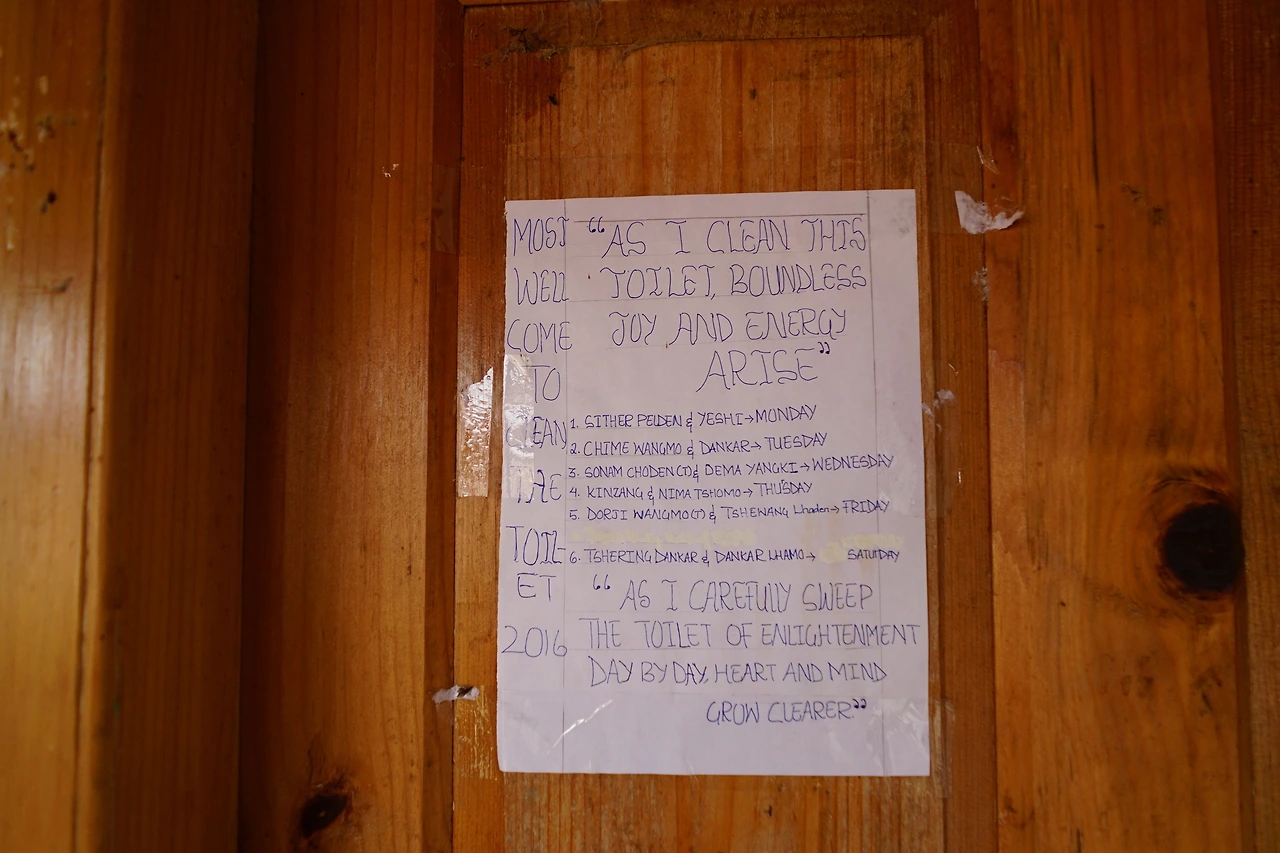 MOST
WELL
COME
TO
CLEAN
THE
TOIL
ET
2016
“AS I CLEAN THIS
TOILET, BOUNDLESS
JOY AND ENERGY
ARISE”
1. SITHER PELDEN & YESHI→MONDAY
2. CHIME WANGMO & DANKAR→ TUESDAY
3. SONAM CHODEN(T)& DEMA YANGKI→WEDNESDAY
4. KINZANG & NIMA TSHOMO→ THUSDAY
5. DORJI WANGMO(T) & TSHEWANG Lhaden→ FRIDAY
6. TSHERING DANKAR & DANKAR LHAMO→ SATUTDAY
“AS I CAREFULLY SWEEP
THE TOILET OF ENLIGHTENMENT
DAY BY DAY, HEART AND MIND
GROW CLEARER”